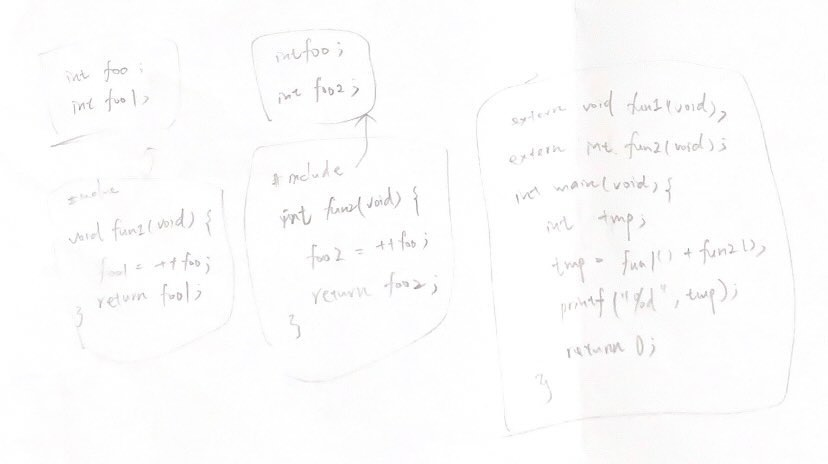 int foo;
int foo1;
#include
void fun1(void) {
foo1 = ++foo;
return foo1;
}
int foo;
int foo2;
#include
int fun2(void) {
foo2 = ++foo;
return foo2;
}
extern void fun1(void);
extern int fun2(void);
int main(void) {
int tmp;
tmp = fun1() + fun2();
printf("%d", tmp);
return 0;
}